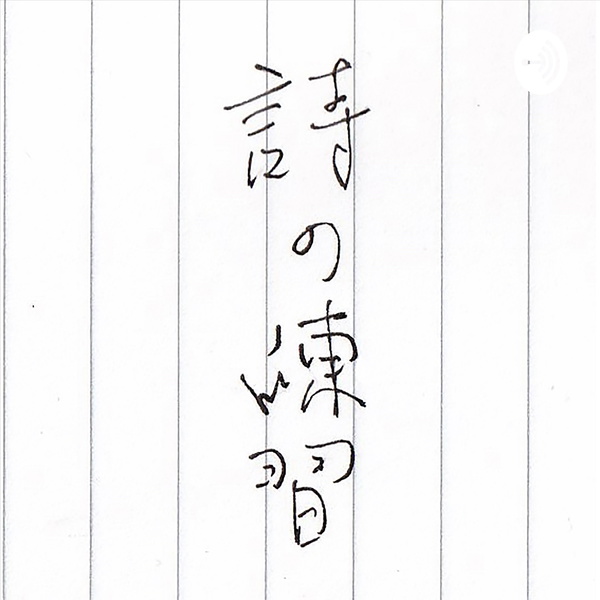 詩の練習